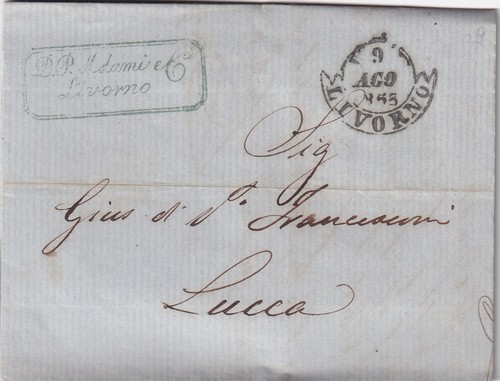 D. P. Adami e C.
Livorno
9
AGO
1855
LIVORNO
Sig
Gius di P. Francesconi
Lucca